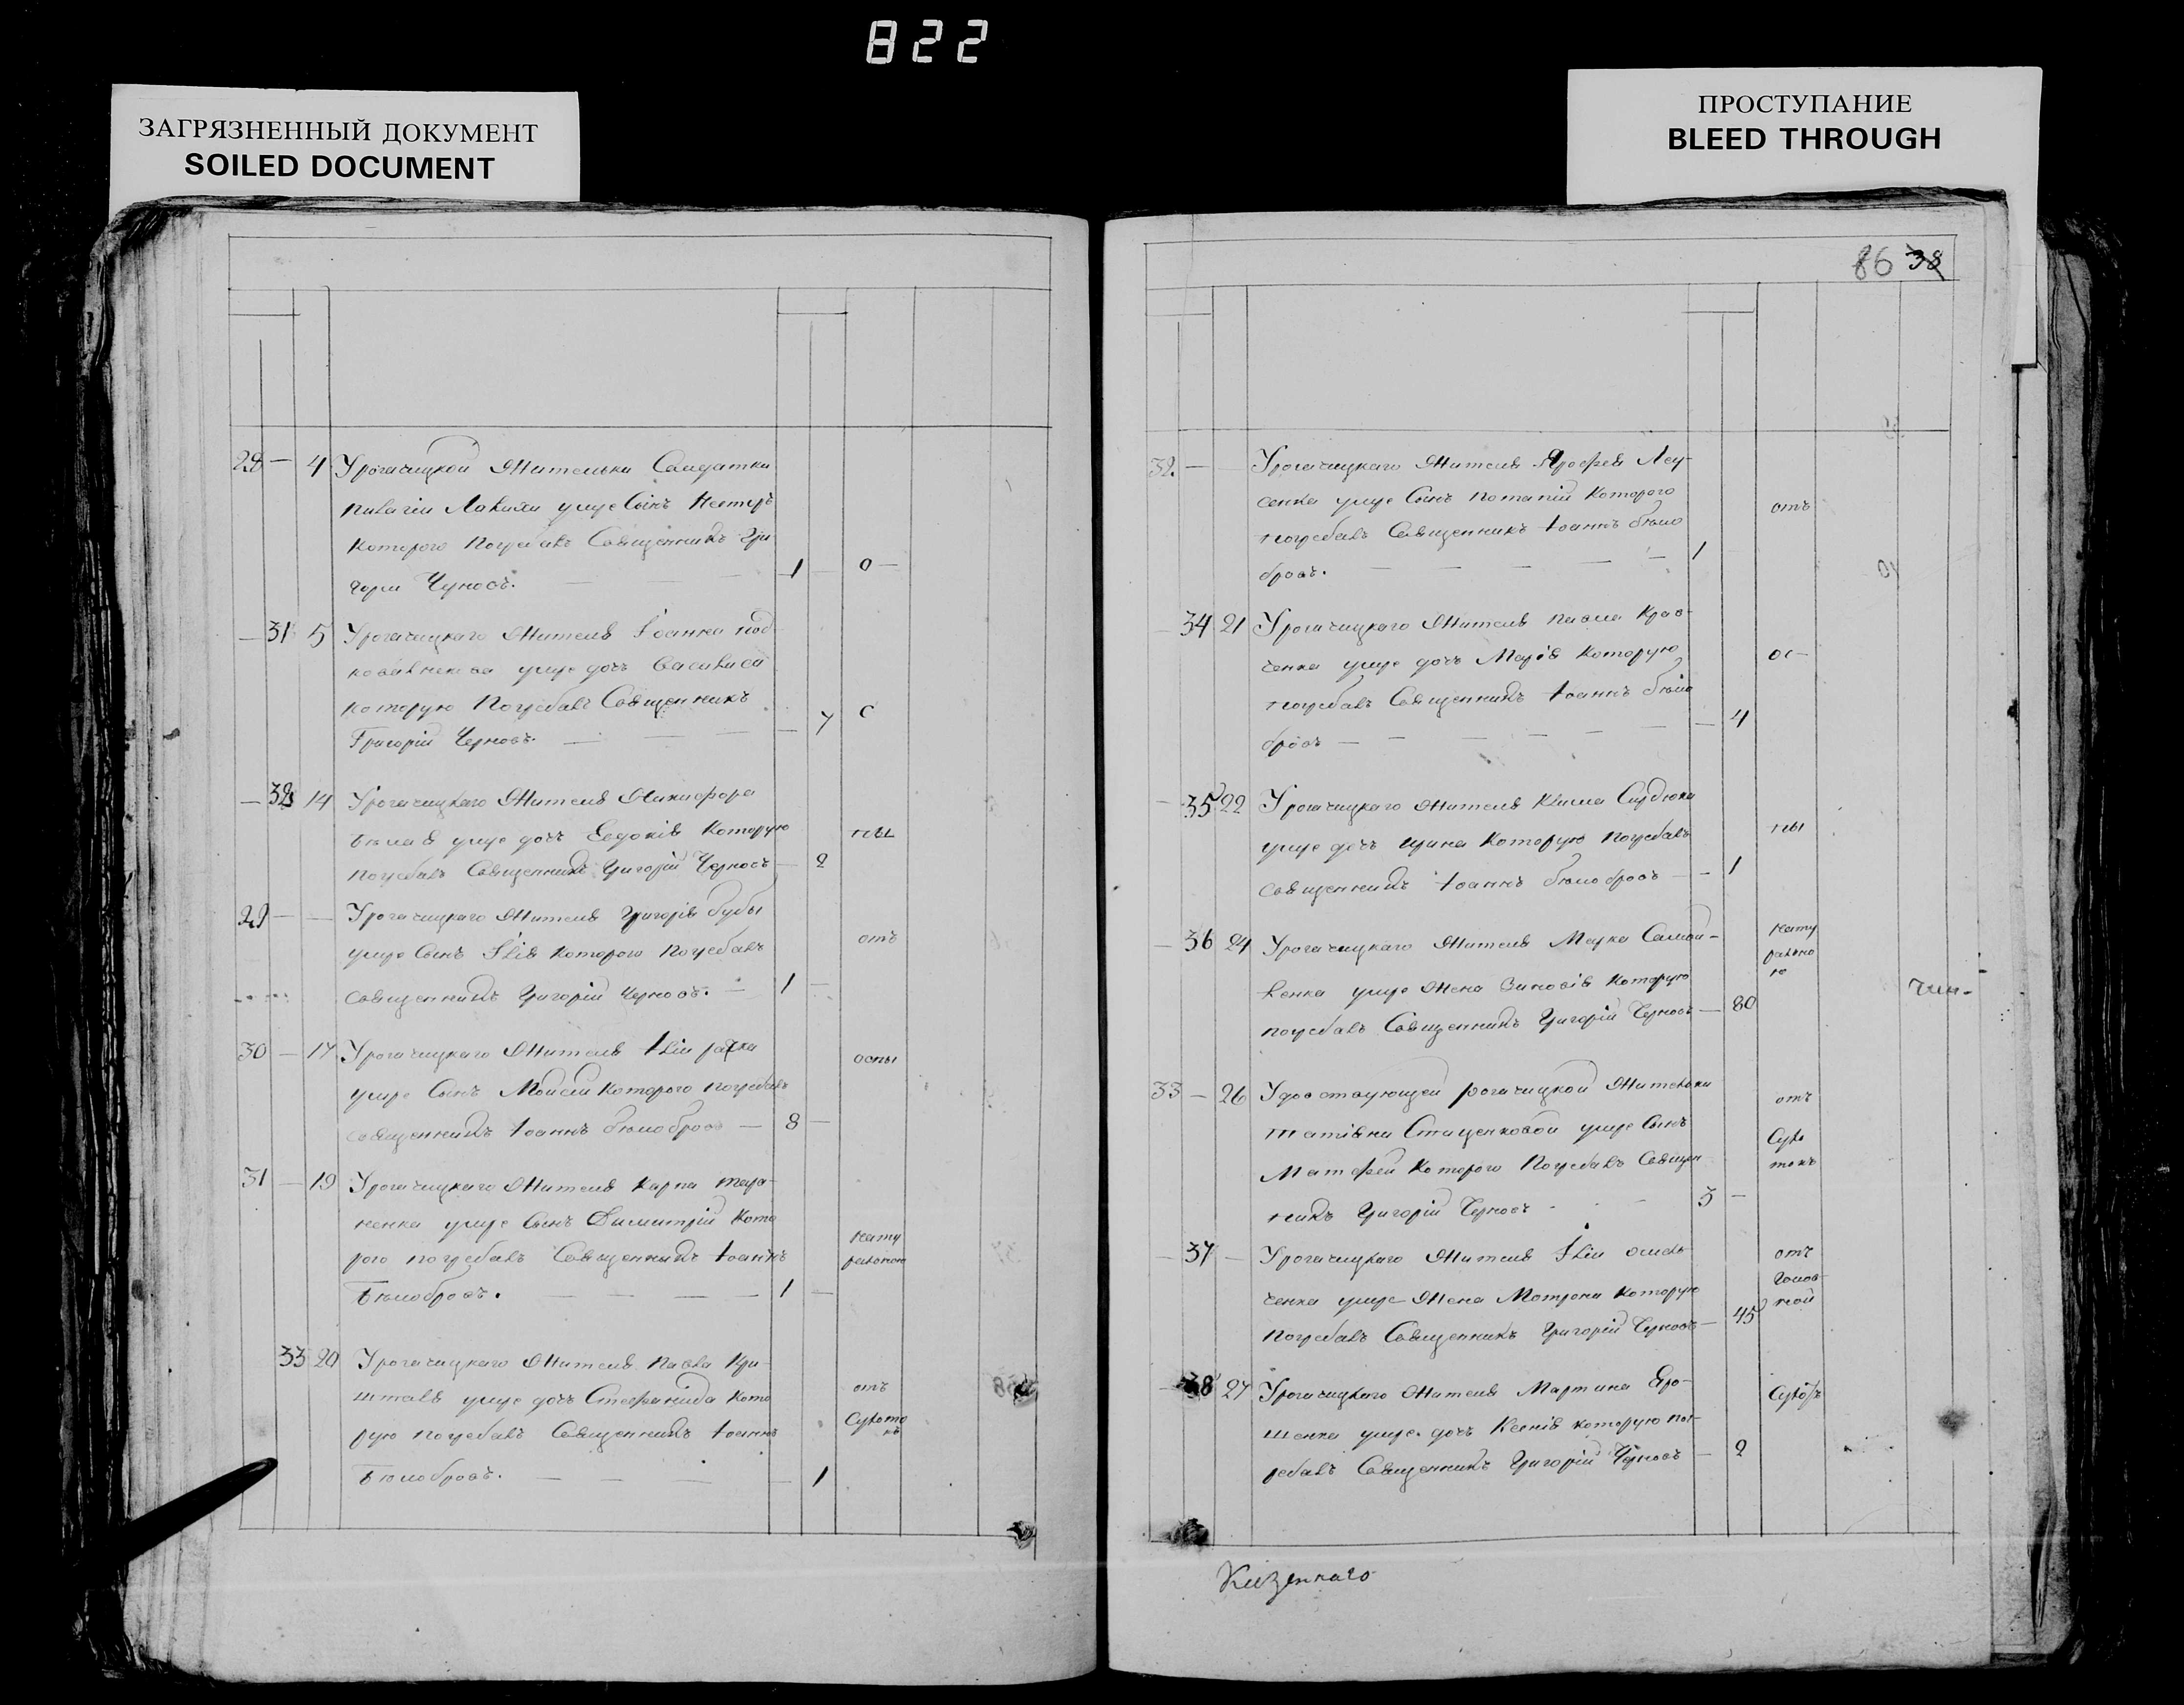 822
ЗАГРЯЗНЕННЫЙ ДОКУМЕНТ
SOILED DOCUMENT
ПРОСТУПАНИЕ
BLEED THROUGH
28 — 4 Урогачицкой Жительки Салдатки
умре Сынъ Нестиръ
которого Погребалъ Священникъ Гри
горiи Черновъ. 1 — О—
— 31 5 Урогачицкаго Жителя Iоанна под
умре дочь Василиса
которую Погребалъ Священникъ
Григорiй Черновъ. — 7 С
— 32 14 Урогачицкаго Жителя Никифора
умре дочь Евдокiя Которую пы
погребалъ Священникъ Григорiй Черновъ — 2
29 — — Урогачицкаго Жителя Григорiя бубы
умре Сынъ Iлiя которого Погребалъ отъ
священникъ Григорiй Черновъ. — 1 —
30 — 17 Урогачицкаго Жителя Iлiи оспы
умре Сынъ Моисей Которого погребалъ
священникъ Iоаннъ бѣлобровъ — 8 —
31 — 19 Урогачицкаго Жителя Карпа
ненка умре Сынъ Димитрiй Кото
рого погребалъ Священникъ Iоаннъ нату
Бѣлобровъ. 1 — ральною
33 20 Урогачицкаго Жителя Павла Кри
шталя умре дочь Стефанида Кото отъ
рую погребалъ Священникъ Iоаннъ Сухото
Бѣлобровъ. — 1 къ
86 38
32 — Урогачицкаго Жителя Ярофея Леу
сенка умре Сынъ Потапiй Которого отъ
погребалъ Священникъ Iоаннъ бѣло
бровъ. — 1
— 34 21 Урогачицкаго Жителя Павла Крав
ченка умре дочь Марiя Которую ос—
погребалъ Священникъ Iоаннъ бѣло
бровъ — — 4
— 35 22 Урогачицкаго Жителя Клима Сердюка
умре дочь Ирина Которую Погребалъ пы
священникъ Iоаннъ бѣлобровъ — 1
— 36 24 Урогачицкаго Жителя Марка Самой- нату
ленка умре Жена Зиновiя Которую рально
погребалъ Священникъ Григорiй Черновъ — 80 ю
33 — 26 Удовствующей рогачицкой Жительки отъ
Татiяни Стаценковой умре Сынъ Сухо
Матфей Которого Погребалъ Священ токъ
никъ Григорiй Черновъ 3 —
— 37 — Урогачицкаго Жителя Iлiи Омель отъ
ченка умре Жена Мотрона Которую голов
Погребалъ Священникъ Григорiй Черновъ — 45 ной
— 38 27 Урогачицкаго Жителя Мартина Яро-
шенка умре дочь Ксенiя которую пог-
ребалъ Священникъ Григорiй Черновъ — 2